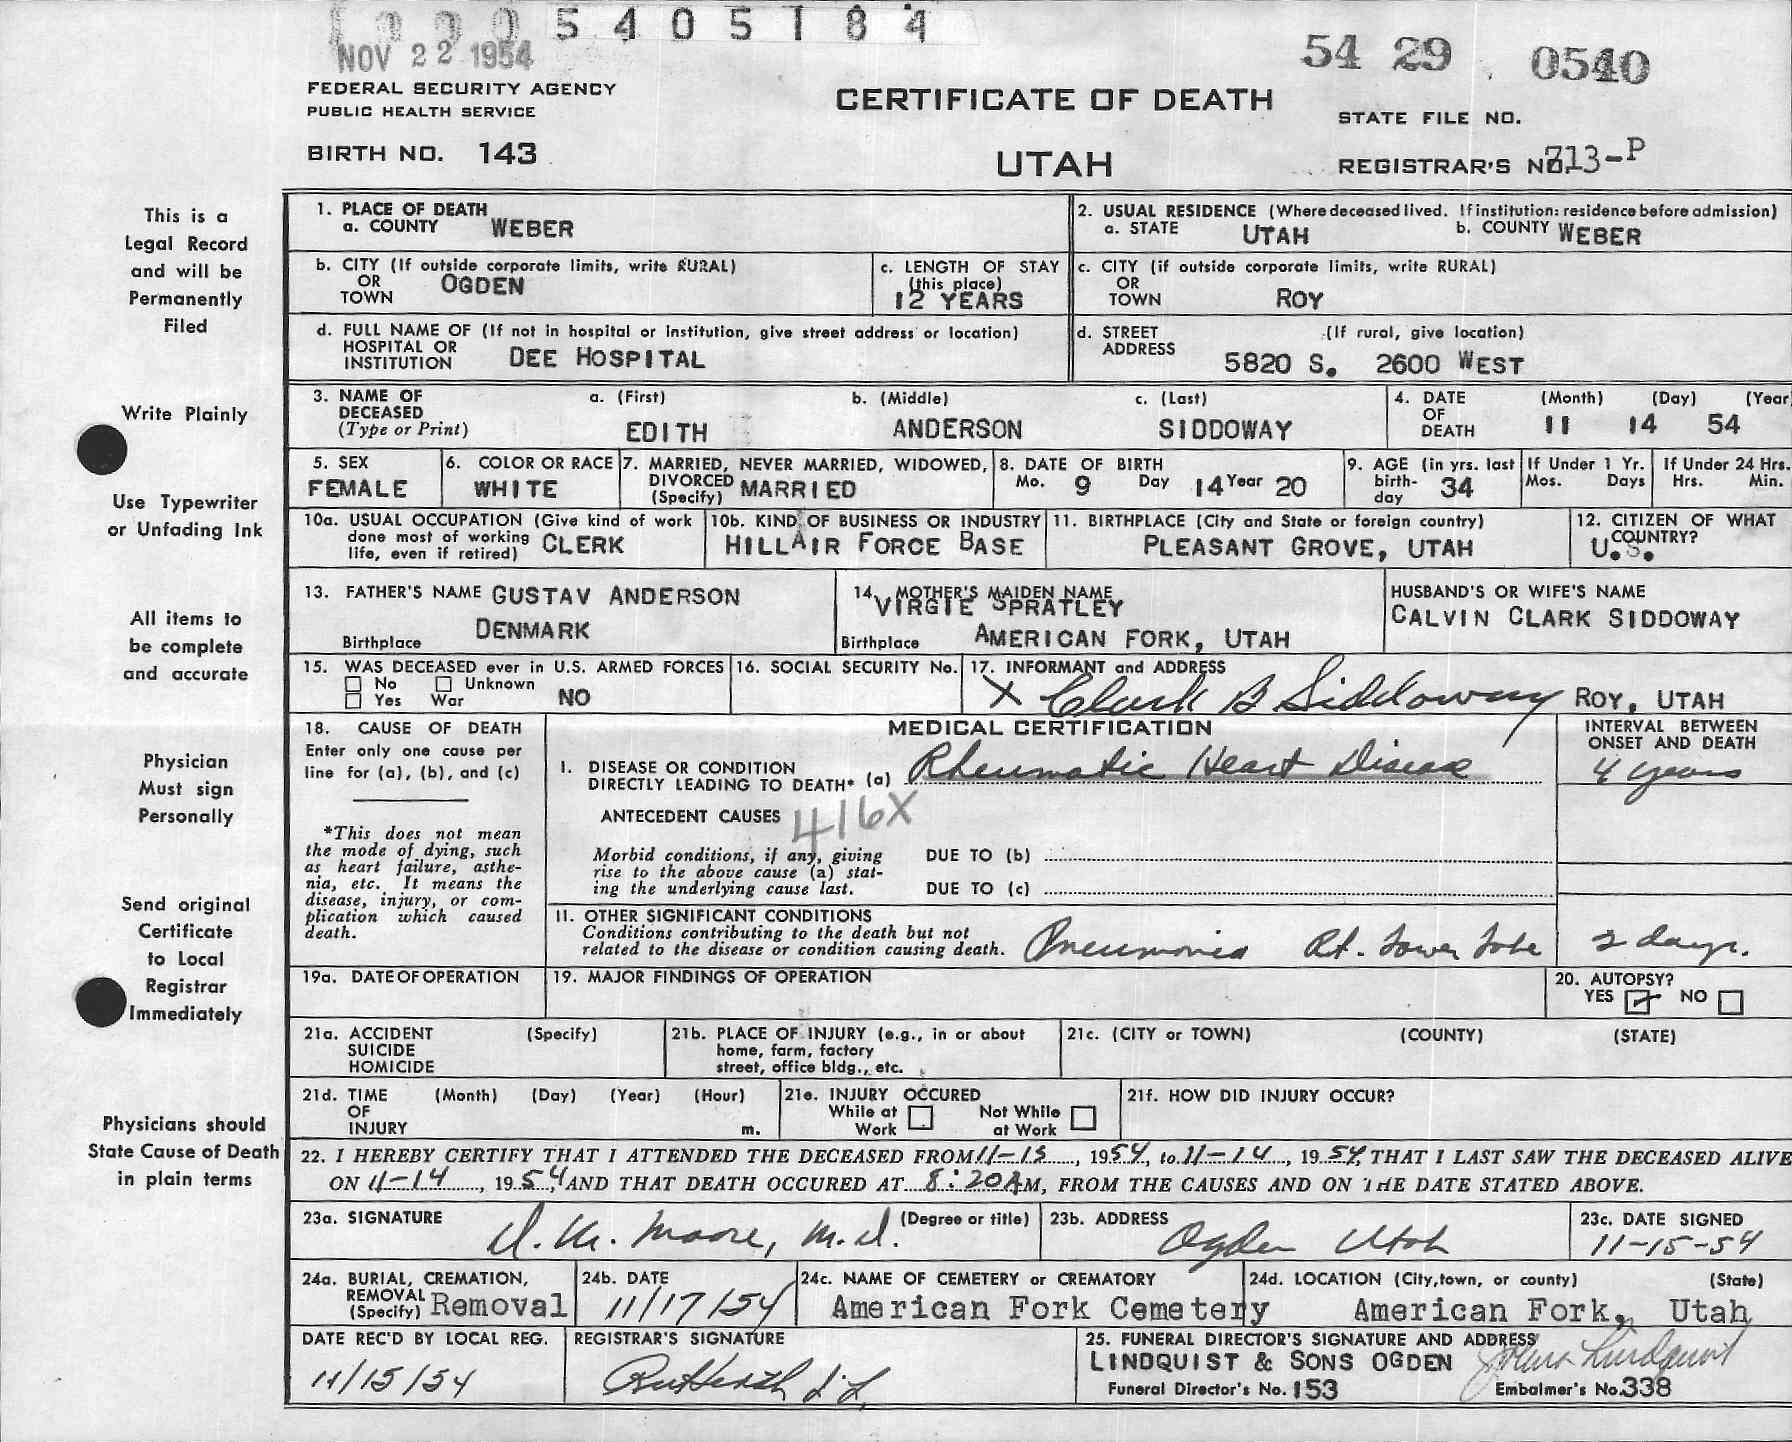 5 4 0 5 1 8 4
NOV 22 1954
54 29 0540
FEDERAL SECURITY AGENCY
PUBLIC HEALTH SERVICE
CERTIFICATE OF DEATH
STATE FILE NO.
BIRTH NO. 143
UTAH
REGISTRAR'S NO. 713-P
This is a
Legal Record
and will be
Permanently
Filed
1. PLACE OF DEATH
a. COUNTY WEBER
2. USUAL RESIDENCE (Where deceased lived. If institution: residence before admission)
a. STATE UTAH b. COUNTY WEBER
b. CITY (If outside corporate limits, write RURAL)
OR
TOWN OGDEN
c. LENGTH OF STAY
(this place)
12 YEARS
c. CITY (if outside corporate limits, write RURAL)
OR
TOWN ROY
d. FULL NAME OF (If not in hospital or institution, give street address or location)
HOSPITAL OR
INSTITUTION DEE HOSPITAL
d. STREET (If rural, give location)
ADDRESS
5820 S. 2600 WEST
Write Plainly
3. NAME OF a. (First) b. (Middle) c. (Last)
DECEASED
(Type or Print) EDITH ANDERSON SIDDOWAY
4. DATE (Month) (Day) (Year
OF
DEATH 11 14 54
Use Typewriter
or Unfading Ink
5. SEX
FEMALE
6. COLOR OR RACE
WHITE
7. MARRIED, NEVER MARRIED, WIDOWED,
DIVORCED
(Specify) MARRIED
8. DATE OF BIRTH
Mo. 9 Day 14 Year 20
9. AGE (in yrs. last
birth-
day 34
If Under 1 Yr.
Mos. Days
If Under 24 Hrs.
Hrs. Min.
10a. USUAL OCCUPATION (Give kind of work
done most of working
life, even if retired) CLERK
10b. KIND OF BUSINESS OR INDUSTRY
HILL AIR FORCE BASE
11. BIRTHPLACE (City and State or foreign country)
PLEASANT GROVE, UTAH
12. CITIZEN OF WHAT
COUNTRY?
U.S.
All items to
be complete
and accurate
13. FATHER'S NAME GUSTAV ANDERSON
Birthplace DENMARK
14. MOTHER'S MAIDEN NAME
VIRGIE SPRATLEY
Birthplace AMERICAN FORK, UTAH
HUSBAND'S OR WIFE'S NAME
CALVIN CLARK SIDDOWAY
15. WAS DECEASED ever in U.S. ARMED FORCES
No Unknown
Yes War NO
16. SOCIAL SECURITY No.
17. INFORMANT and ADDRESS
X Clark B Siddoway ROY, UTAH
Physician
Must sign
Personally
18. CAUSE OF DEATH
Enter only one cause per
line for (a), (b), and (c)
*This does not mean
the mode of dying, such
as heart failure, asthe-
nia, etc. It means the
disease, injury, or com-
plication which caused
death.
MEDICAL CERTIFICATION
INTERVAL BETWEEN
ONSET AND DEATH
I. DISEASE OR CONDITION
DIRECTLY LEADING TO DEATH* (a) Rheumatic Heart Disease 4 years
ANTECEDENT CAUSES 416X
Morbid conditions, if any, giving
rise to the above cause (a) stat-
ing the underlying cause last.
DUE TO (b)
DUE TO (c)
Send original
Certificate
to Local
Registrar
Immediately
II. OTHER SIGNIFICANT CONDITIONS
Conditions contributing to the death but not
related to the disease or condition causing death. Pneumonia Rt. Lower Lobe 2 days.
19a. DATE OF OPERATION
19. MAJOR FINDINGS OF OPERATION
20. AUTOPSY?
YES NO
21a. ACCIDENT (Specify)
SUICIDE
HOMICIDE
21b. PLACE OF INJURY (e.g., in or about
home, farm, factory
street, office bldg., etc.
21c. (CITY or TOWN) (COUNTY) (STATE)
Physicians should
State Cause of Death
in plain terms
21d. TIME (Month) (Day) (Year) (Hour)
OF
INJURY m.
21e. INJURY OCCURED
While at Not While
Work at Work
21f. HOW DID INJURY OCCUR?
22. I HEREBY CERTIFY THAT I ATTENDED THE DECEASED FROM 11-13, 1954, to 11-14, 1954, THAT I LAST SAW THE DECEASED ALIVE
ON 11-14, 1954, AND THAT DEATH OCCURED AT 8:20AM, FROM THE CAUSES AND ON THE DATE STATED ABOVE.
23a. SIGNATURE (Degree or title)
D. M. Moore, M.D.
23b. ADDRESS
Ogden Utah
23c. DATE SIGNED
11-15-54
24a. BURIAL, CREMATION,
REMOVAL
(Specify) Removal
24b. DATE
11/17/54
24c. NAME OF CEMETERY or CREMATORY
American Fork Cemetery
24d. LOCATION (City, town, or county) (State)
American Fork, Utah
DATE REC'D BY LOCAL REG.
11/15/54
REGISTRAR'S SIGNATURE
25. FUNERAL DIRECTOR'S SIGNATURE AND ADDRESS
LINDQUIST & SONS OGDEN Lindquist
Funeral Director's No. 153 Embalmer's No. 338